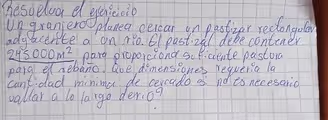 Resuelva el ejercicio
Un granjero planea cercar un pastizar rectangular
adyacente a un río. El pastizal debe contener
245000m² para proporcionar suficiente pastura
para el rebaño. Que dimensiones requeria la
cantidad minima de cercado si no es necesario
vallar a lo largo del rio?